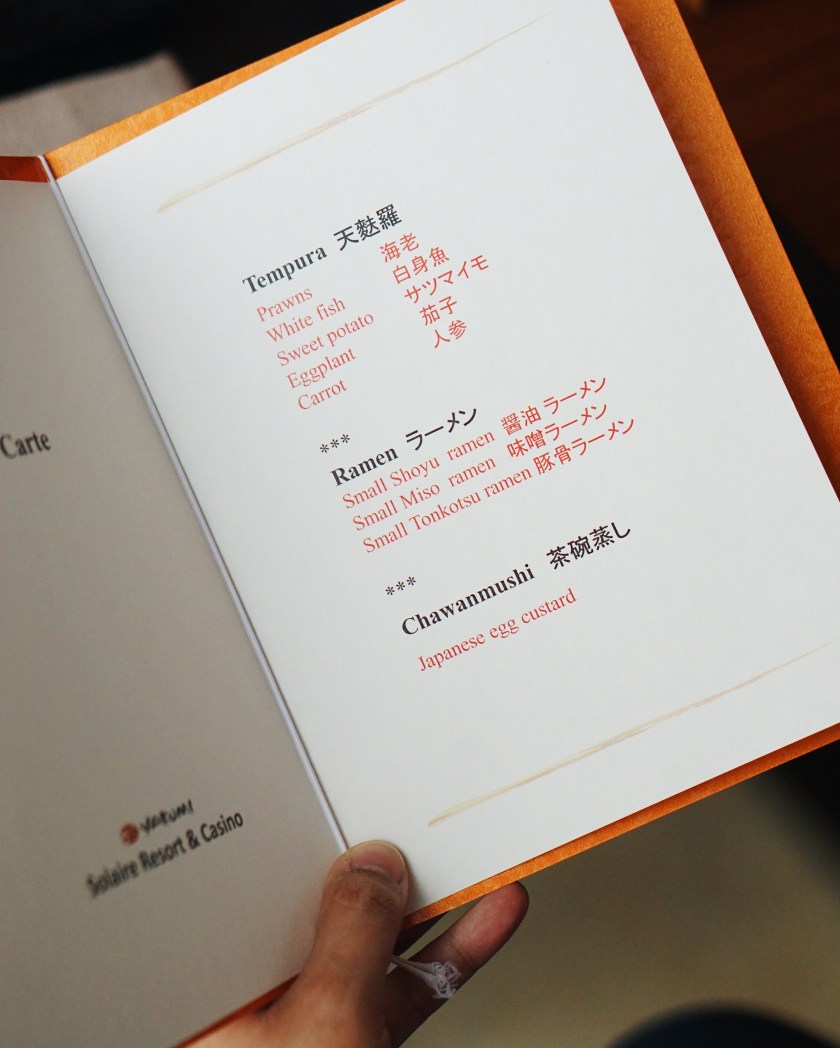 Carte
YAKUMI
Solaire Resort & Casino
Tempura 天麩羅
Prawns 海老
White fish 白身魚
Sweet potato サツマイモ
Eggplant 茄子
Carrot 人参
***
Ramen ラーメン
Small Shoyu ramen 醤油 ラーメン
Small Miso ramen 味噌ラーメン
Small Tonkotsu ramen 豚骨ラーメン
***
Chawanmushi 茶碗蒸し
Japanese egg custard